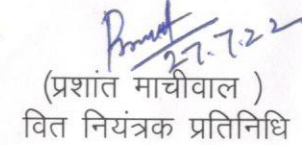 27.7.22
(प्रशांत माचीवाल )
वित नियंत्रक प्रतिनिधि